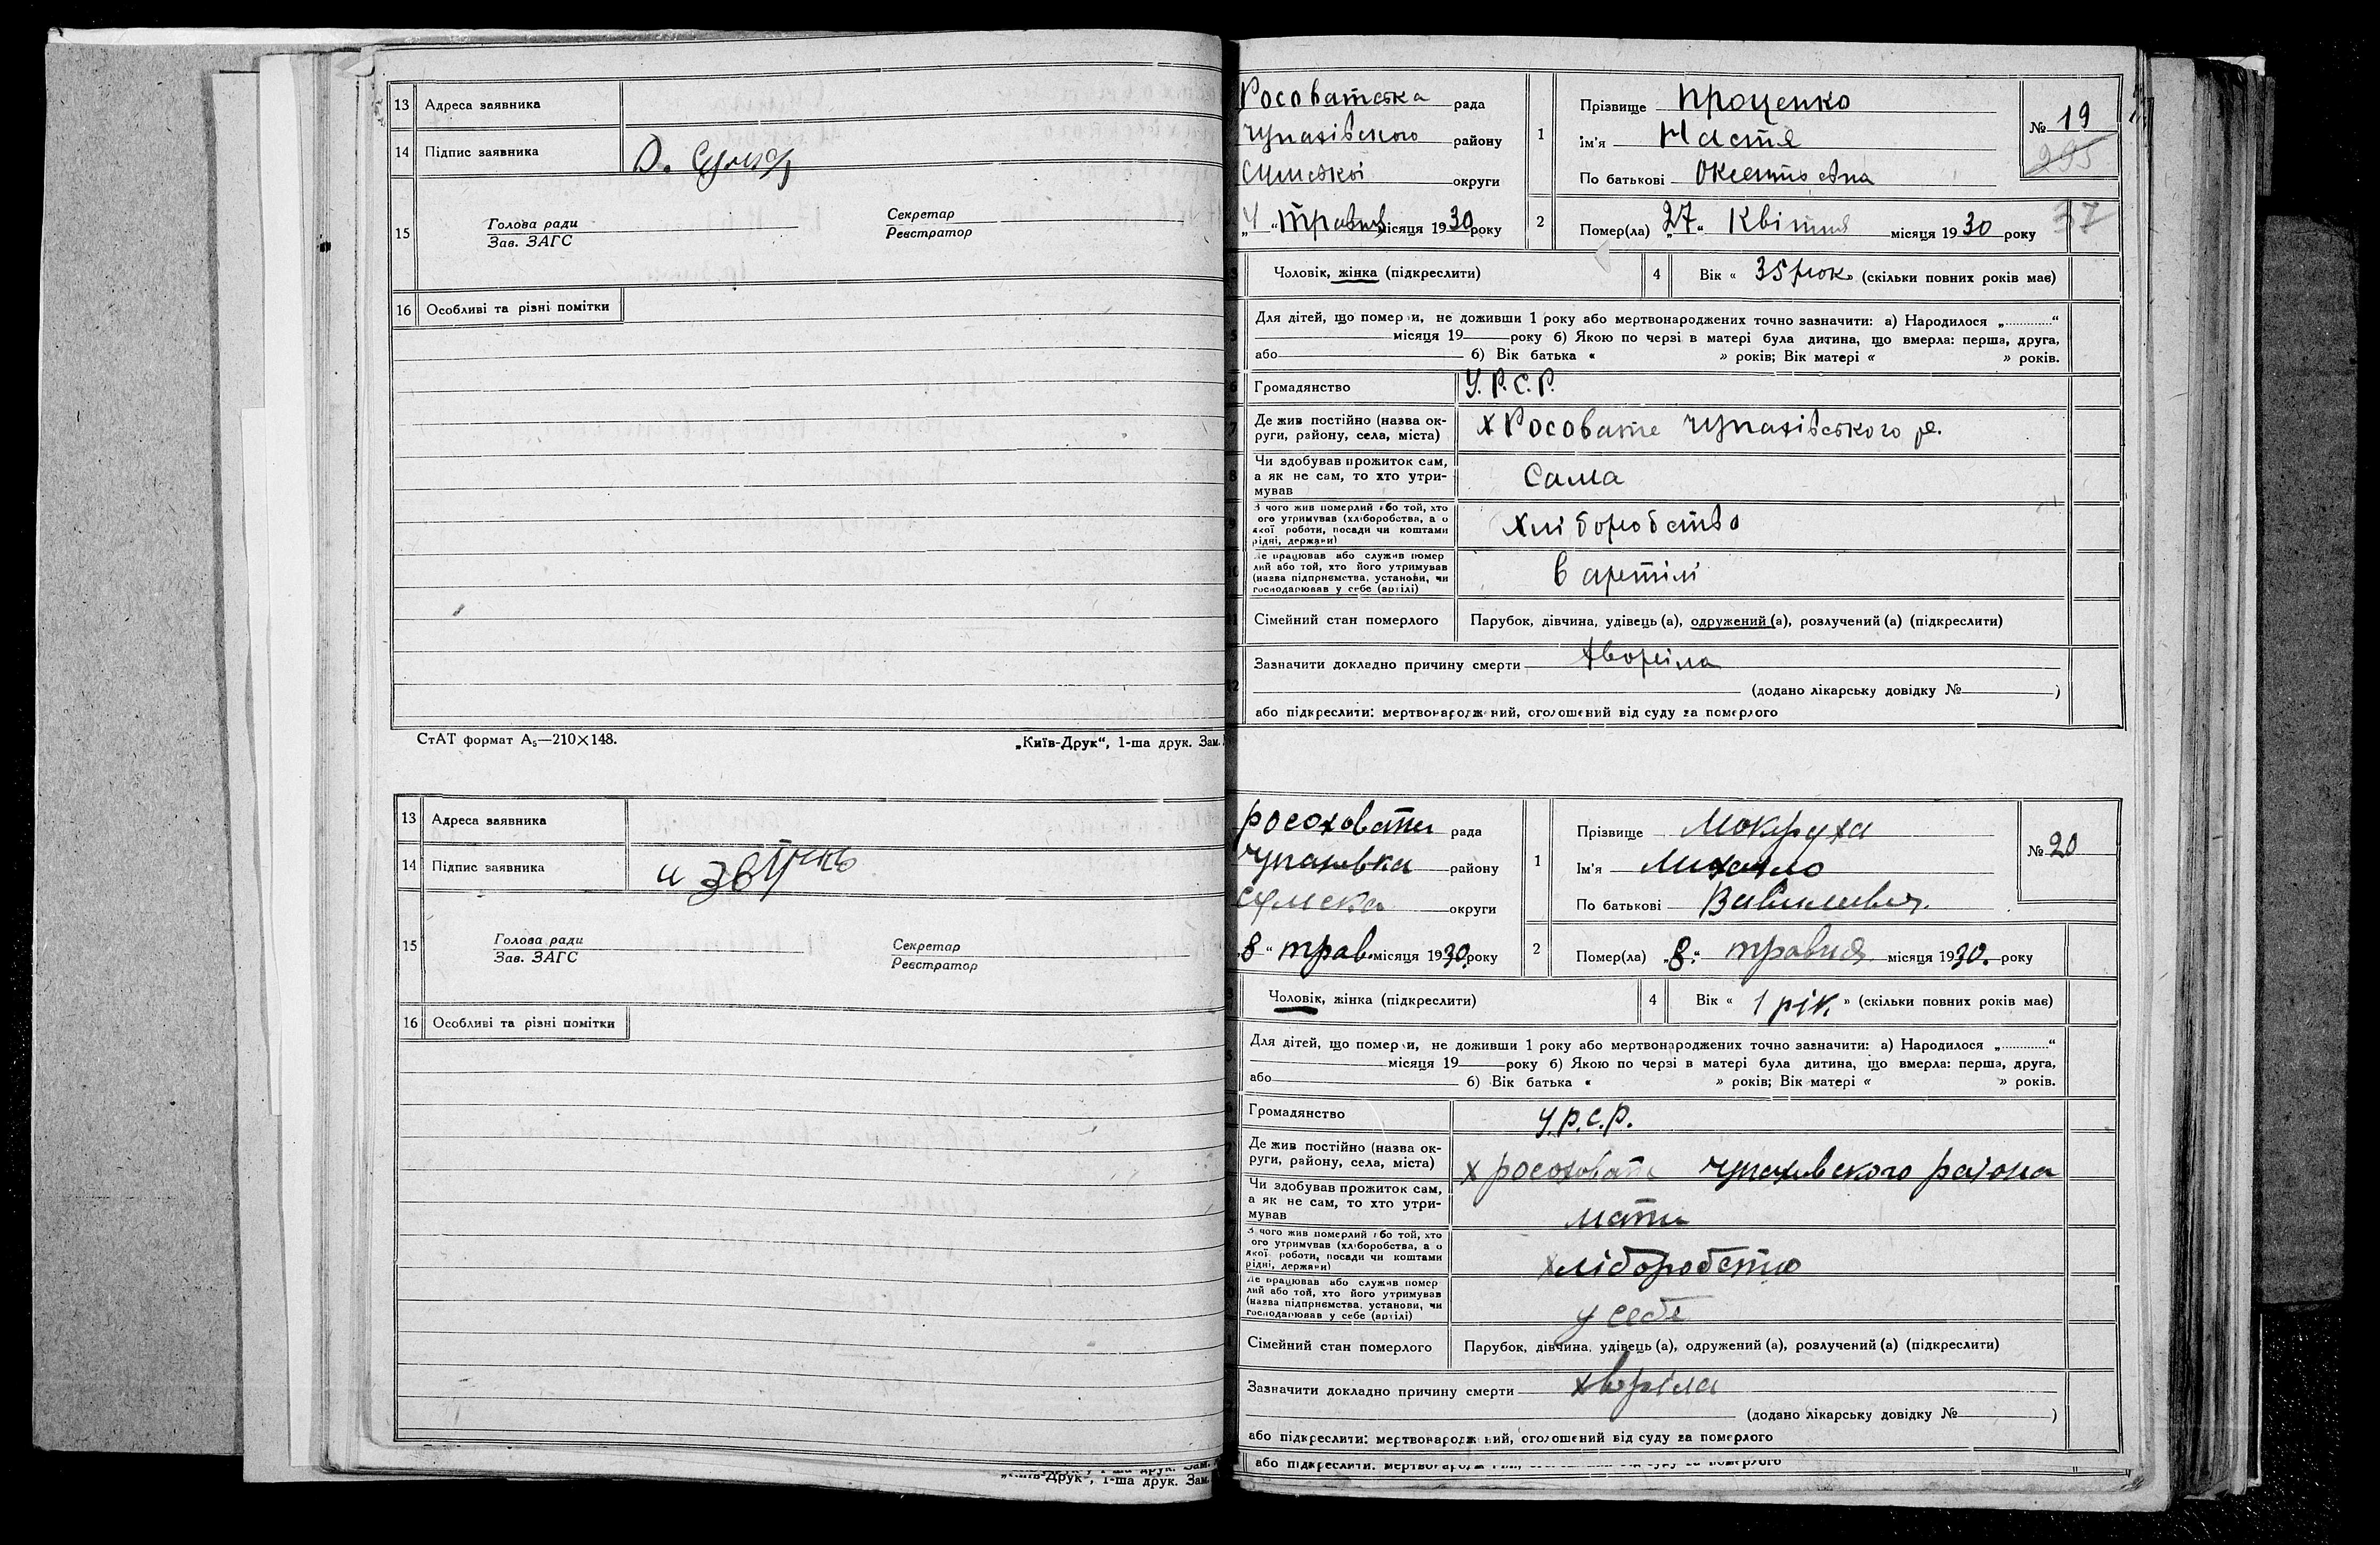 13 Адреса заявника
14 Підпис заявника
15 Голова ради Секретар
Зав. ЗАГС Реєстратор
16 Особливі та різні помітки
СтАТ формат А₅—210×148. „Київ-Друк“, 1-ша друк. Зам.
13 Адреса заявника
14 Підпис заявника
15 Голова ради Секретар
Зав. ЗАГС Реєстратор
16 Особливі та різні помітки
„Київ-Друк“, 1-ша друк. Зам.
Росоватська рада
Чупахівського району
Сумської округи
„4“ травня місяця 1930 року
1 Прізвище Проценко
Ім'я Настя
По батькові
№ 19
295
37
2 Помер(ла) „27“ Квітня місяця 1930 року
Чоловік, жінка (підкреслити) 4 Вік « 35 рок » (скільки повних років має)
Для дітей, що померли, не доживши 1 року або мертвонароджених точно зазначити: а) Народилося „............“
місяця 19 року б) Якою по черзі в матері була дитина, що вмерла: перша, друга,
або б) Вік батька « » років; Вік матері « » років.
Громадянство У.Р.С.Р.
Де жив постійно (назва ок-
руги, району, села, міста) х Росовате Чупахівського р.
Чи здобував прожиток сам,
а як не сам, то хто утри-
мував Сама
З чого жив померлий або той, хто
його утримував (хліборобства, а о
якої роботи, посади чи коштами
рідні, держави) Хліборобство
Де працював або служив помер
лий або той, хто його утримував
(назва підприємства, установи, чи
господарював у себе (артілі) в артілі
Сімейний стан померлого Парубок, дівчина, удівець (а), одружений (а), розлучений (а) (підкреслити)
Зазначити докладно причину смерти хворіла
(додано лікарську довідку № )
або підкреслити: мертвонароджений, оголошений від суду за померлого
росоховати рада
Чупахивка району
Сумска округи
8 “ трав. місяця 1930 року
1 Прізвище Мокруха
Ім'я Михайло
По батькові
№ 20
2 Помер(ла) „8.“ травня місяця 1930. року
Чоловік, жінка (підкреслити) 4 Вік « 1 рік. » (скільки повних років має)
Для дітей, що померли, не доживши 1 року або мертвонароджених точно зазначити: а) Народилося „............“
місяця 19 року б) Якою по черзі в матері була дитина, що вмерла: перша, друга,
або б) Вік батька « » років; Вік матері « » років.
Громадянство У.Р.С.Р.
Де жив постійно (назва ок-
руги, району, села, міста) х росоховати Чупахивского района
Чи здобував прожиток сам,
а як не сам, то хто утри-
мував мати
З чого жив померлий або той, хто
його утримував (хліборобства, а о
якої роботи, посади чи коштами
рідні, держави) хліборобство
Де працював або служив помер
лий або той, хто його утримував
(назва підприємства, установи, чи
господарював у себе (артілі) у себе
Сімейний стан померлого Парубок, дівчина, удівець (а), одружений (а), розлучений (а) (підкреслити)
Зазначити докладно причину смерти хворіла
(додано лікарську довідку № )
або підкреслити: мертвонароджений, оголошений від суду за померлого
або підкреслити: мертвонароджений, оголошений від суду за померлого